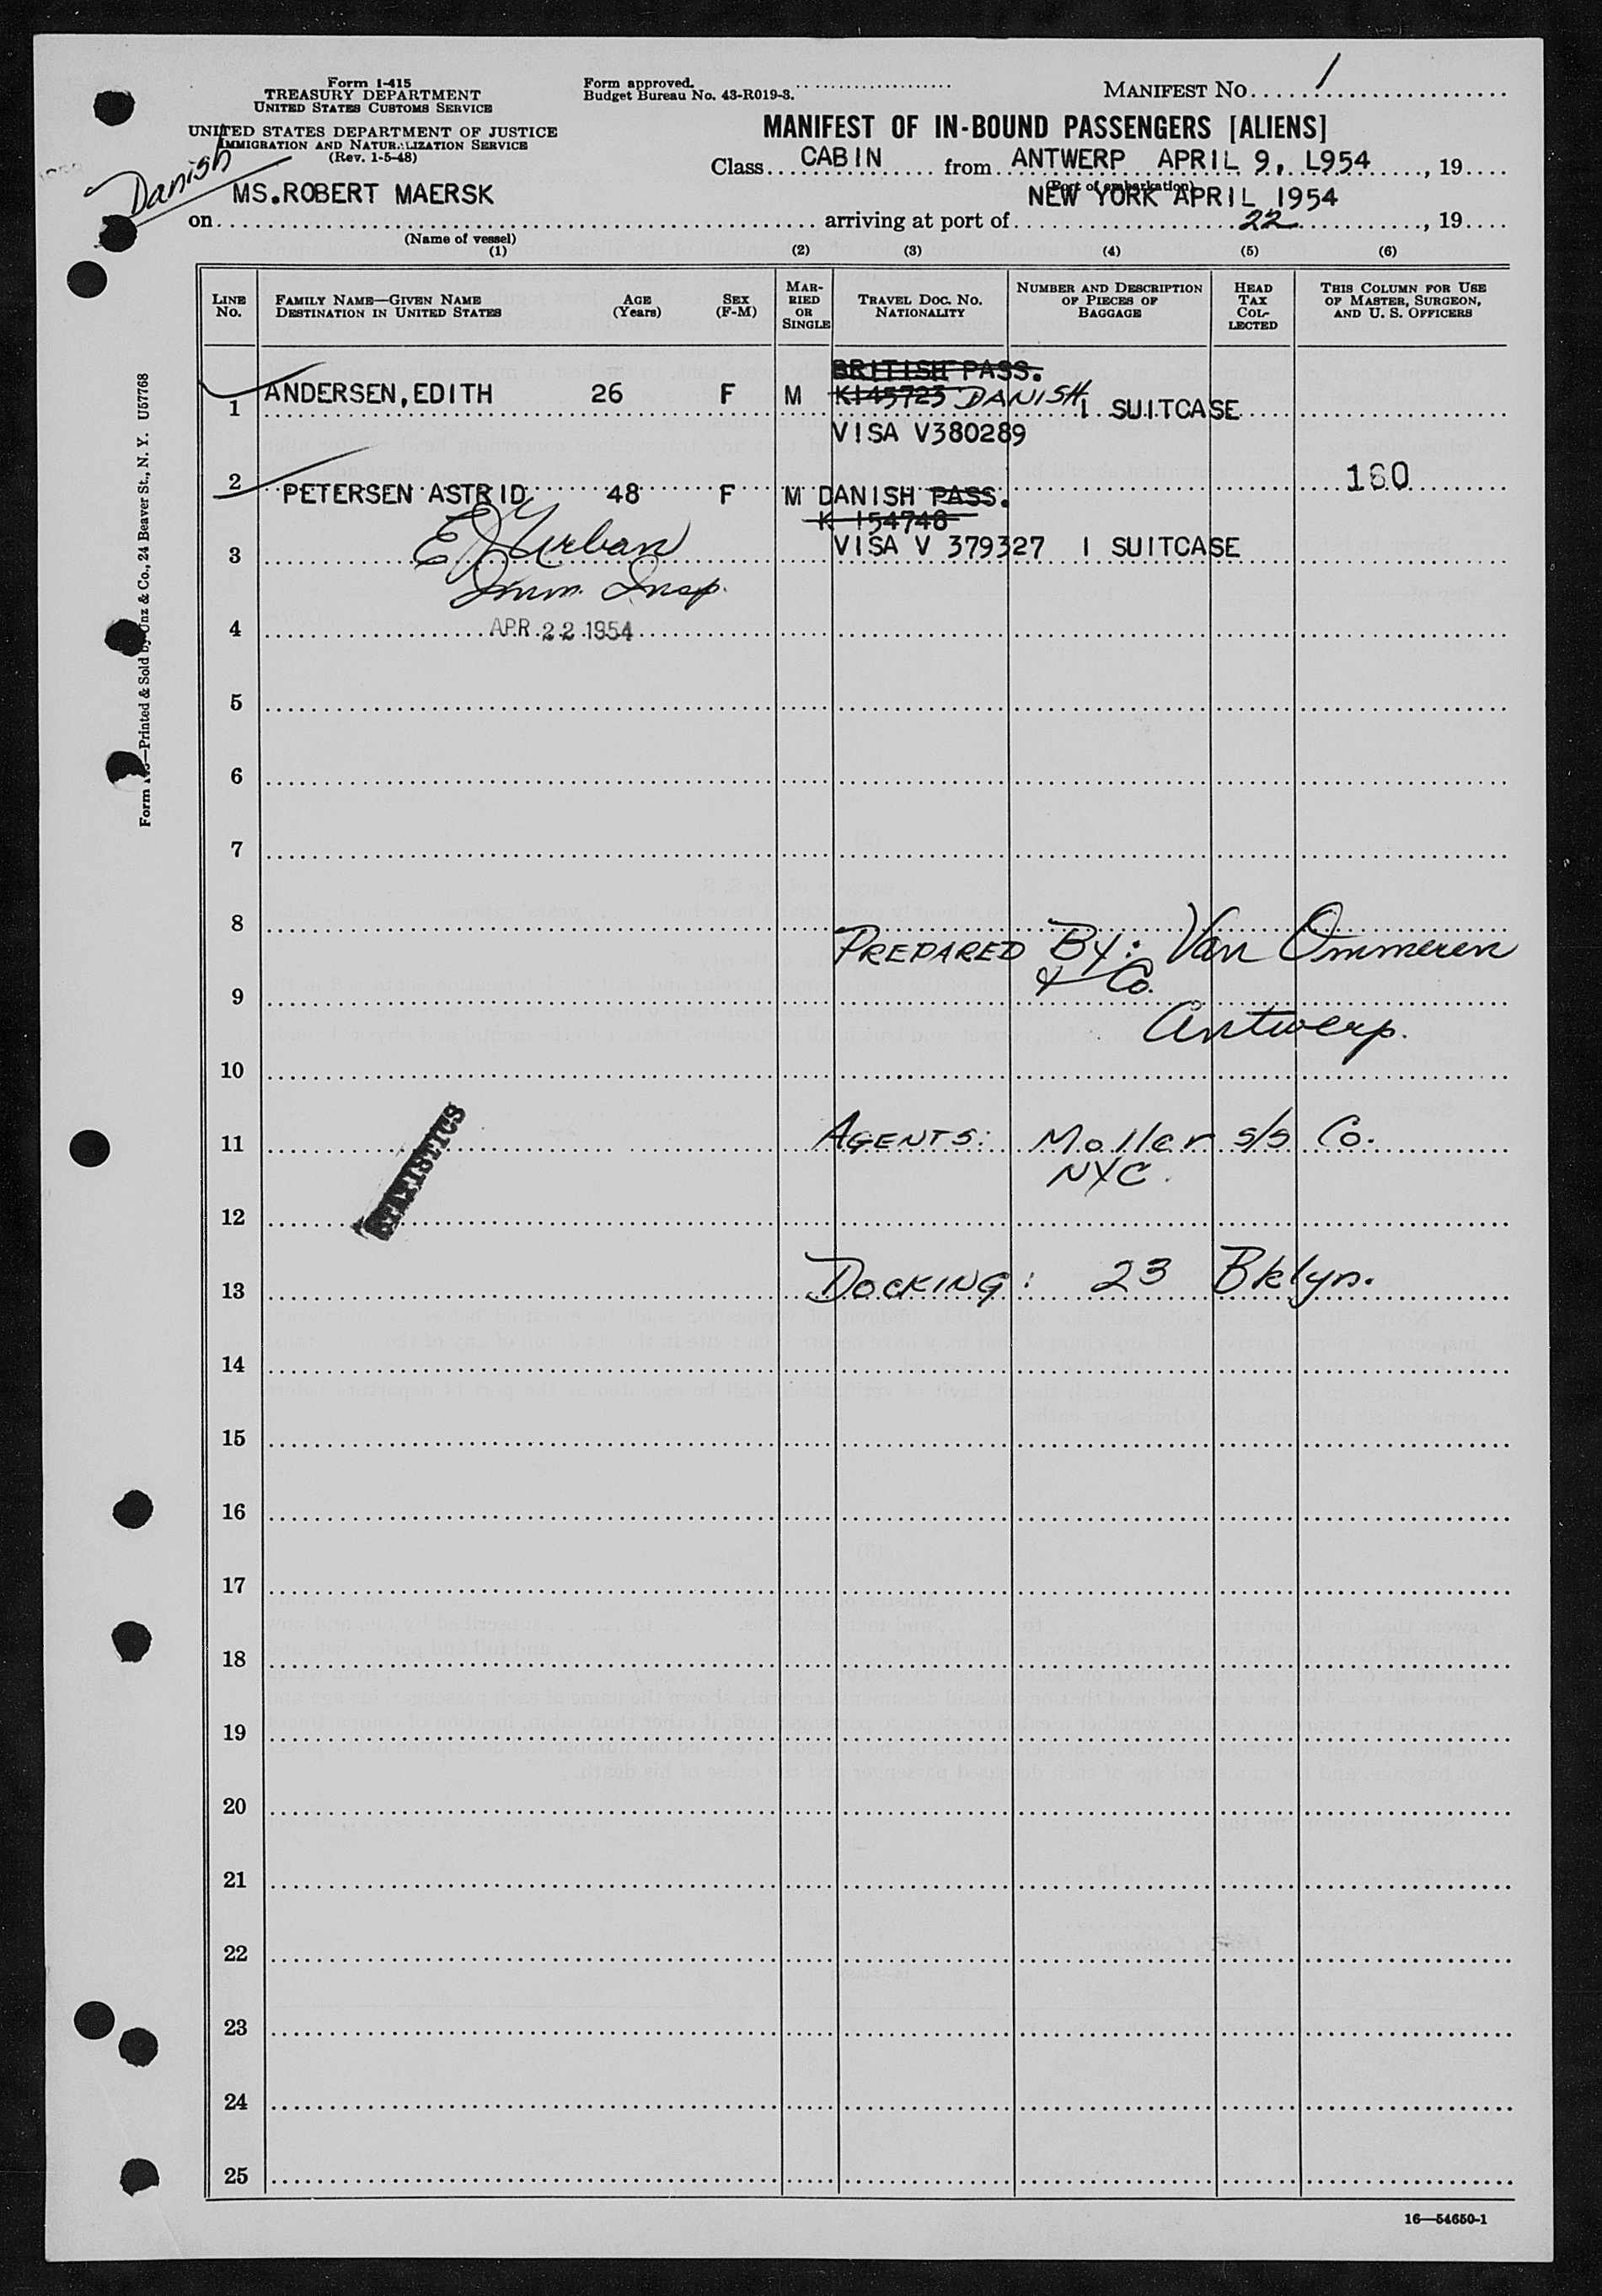 Form I-415
TREASURY DEPARTMENT
UNITED STATES CUSTOMS SERVICE
UNITED STATES DEPARTMENT OF JUSTICE
IMMIGRATION AND NATURALIZATION SERVICE
(Rev. 1-5-48)
Form approved.
Budget Bureau No. 43-R019-3.
MANIFEST NO. 1
MANIFEST OF IN-BOUND PASSENGERS [ALIENS]
Class CABIN from ANTWERP APRIL 9, L954, 19
(Port of embarkation)
Danish
MS.ROBERT MAERSK
NEW YORK APRIL 1954
on arriving at port of 22, 19
(Name of vessel)
(1) (2) (3) (4) (5) (6)
LINE NO.
FAMILY NAME—GIVEN NAME
DESTINATION IN UNITED STATES
AGE (Years)
SEX (F-M)
MARRIED OR SINGLE
TRAVEL DOC. NO. NATIONALITY
NUMBER AND DESCRIPTION OF PIECES OF BAGGAGE
HEAD TAX COLLECTED
THIS COLUMN FOR USE OF MASTER, SURGEON, AND U. S. OFFICERS
BRITISH PASS.
1 ANDERSEN, EDITH 26 F M K145723 DANISH 1 SUITCASE
VISA V380289
2 PETERSEN ASTRID 48 F M DANISH PASS. 160
K 154748
3 VISA V 379327 1 SUITCASE
E J Urban
Imm. Insp.
4 APR 22 1954
5
6
7
8
PREPARED By: Van Ommeren
9 & Co.
Antwerp.
10
11 AGENTS: Moller s/s Co.
NYC.
STATISTICS
12
13 DOCKING: 23 Bklyn.
14
15
16
17
18
19
20
21
22
23
24
25
16—54650-1
Printed & Sold by Unz & Co., 24 Beaver St., N. Y. U57768